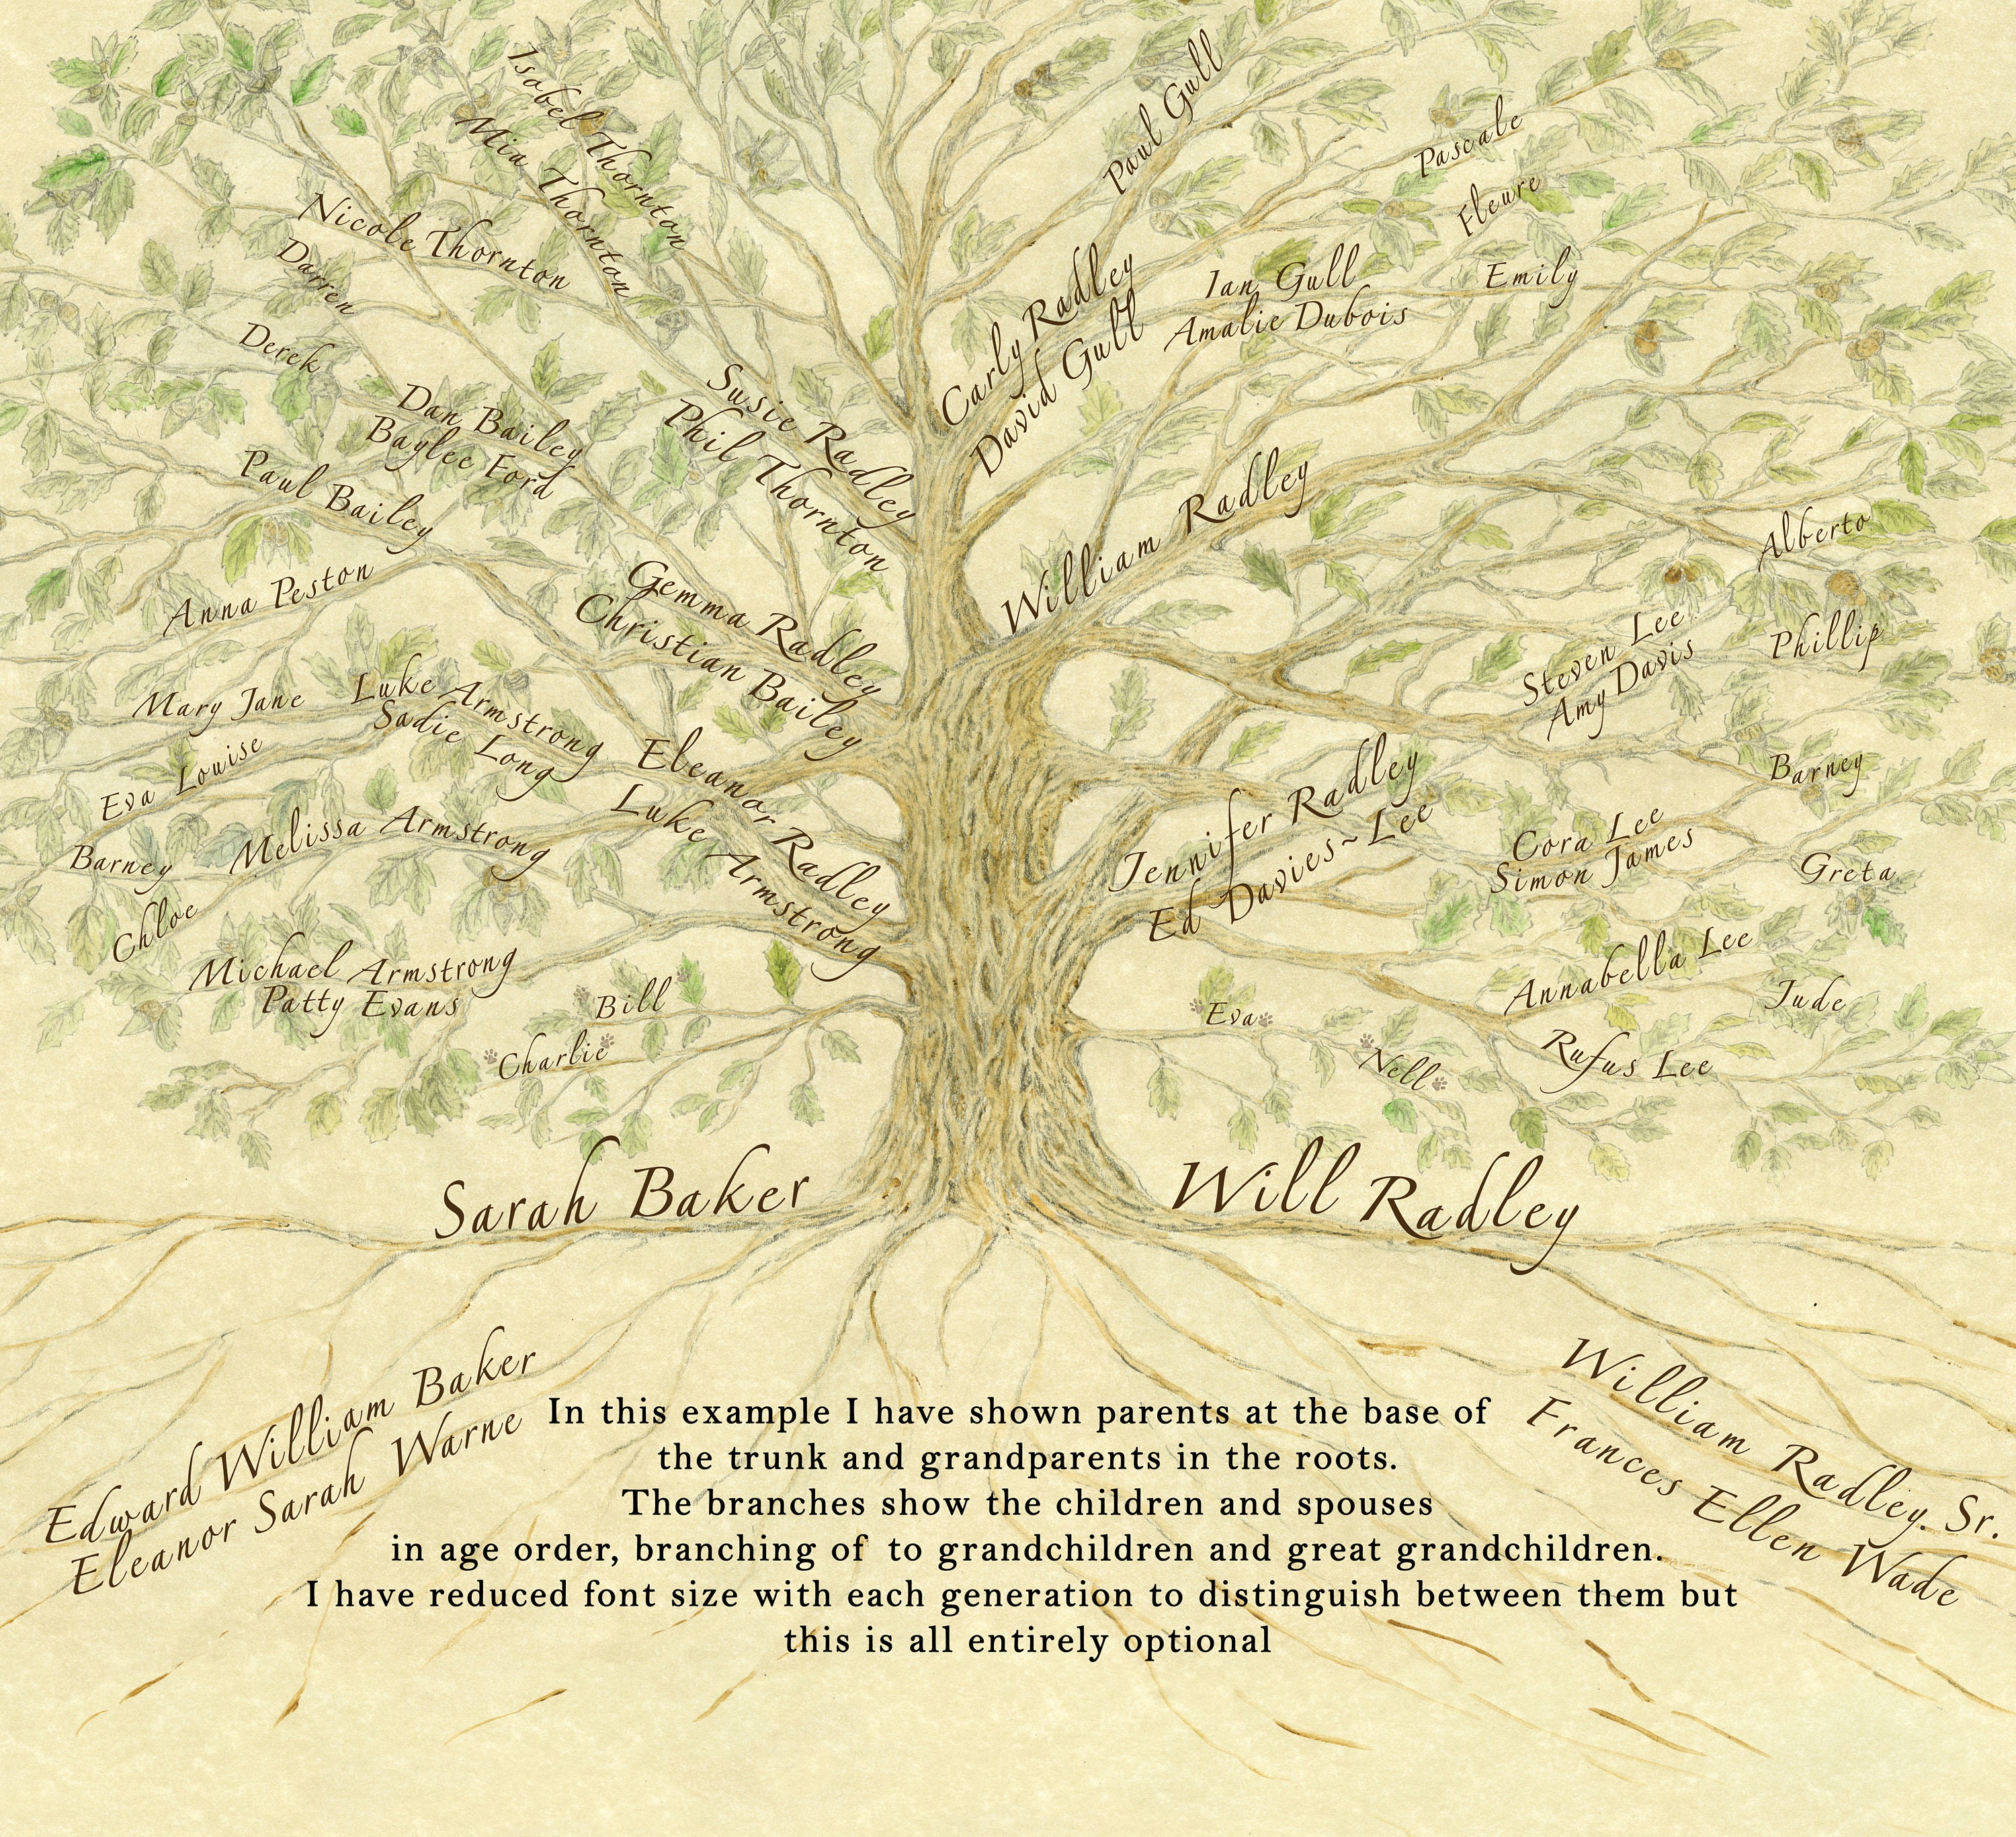 Isobel Thornton
Mia Thornton
Nicole Thornton
Darren
Derek
Dan Bailey
Baylee Ford
Paul Bailey
Anna Peston
Susie Radley
Phil Thornton
Gemma Radley
Christian Bailey
Mary Jane
Luke Armstrong
Sadie Long
Eva Louise
Eleanor Radley
Luke Armstrong
Barney
Melissa Armstrong
Chloe
Michael Armstrong
Patty Evans
Bill
Charlie
Paul Gull
Pascale
Fleure
Carly Radley
David Gull
Ian Gull
Amalie Dubois
Emily
William Radley
Alberto
Steven Lee
Amy Davis
Phillip
Jennifer Radley
Ed Davies~Lee
Barney
Cora Lee
Simon James
Greta
Annabella Lee
Jude
Eva
Nell
Rufus Lee
Sarah Baker
Will Radley
Edward William Baker
Eleanor Sarah Warne
William Radley. Sr.
Frances Ellen Wade
In this example I have shown parents at the base of
the trunk and grandparents in the roots.
The branches show the children and spouses
in age order, branching of to grandchildren and great grandchildren.
I have reduced font size with each generation to distinguish between them but
this is all entirely optional